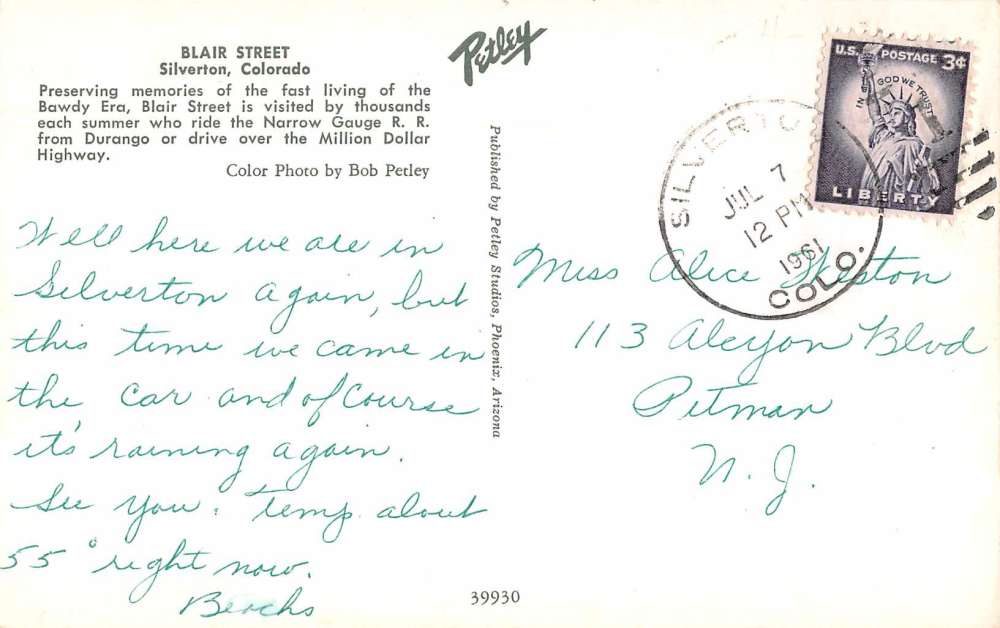 BLAIR STREET
Silverton, Colorado
Preserving memories of the fast living of the
Bawdy Era, Blair Street is visited by thousands
each summer who ride the Narrow Gauge R. R.
from Durango or drive over the Million Dollar
Highway.
Color Photo by Bob Petley
Petley
Well here we are in
Silverton again, but
this time we came in
the car and of course
it's raining again.
See you. Temp. about
55° right now.
Beachs
Published by Petley Studios, Phoenix, Arizona
39930
U.S. POSTAGE 3¢
IN GOD WE TRUST
LIBERTY
SILVERTON
JUL 7
12 PM
1961
COLO.
Miss Alice Weston
113 Alcyon Blvd
Pitman
N. J.